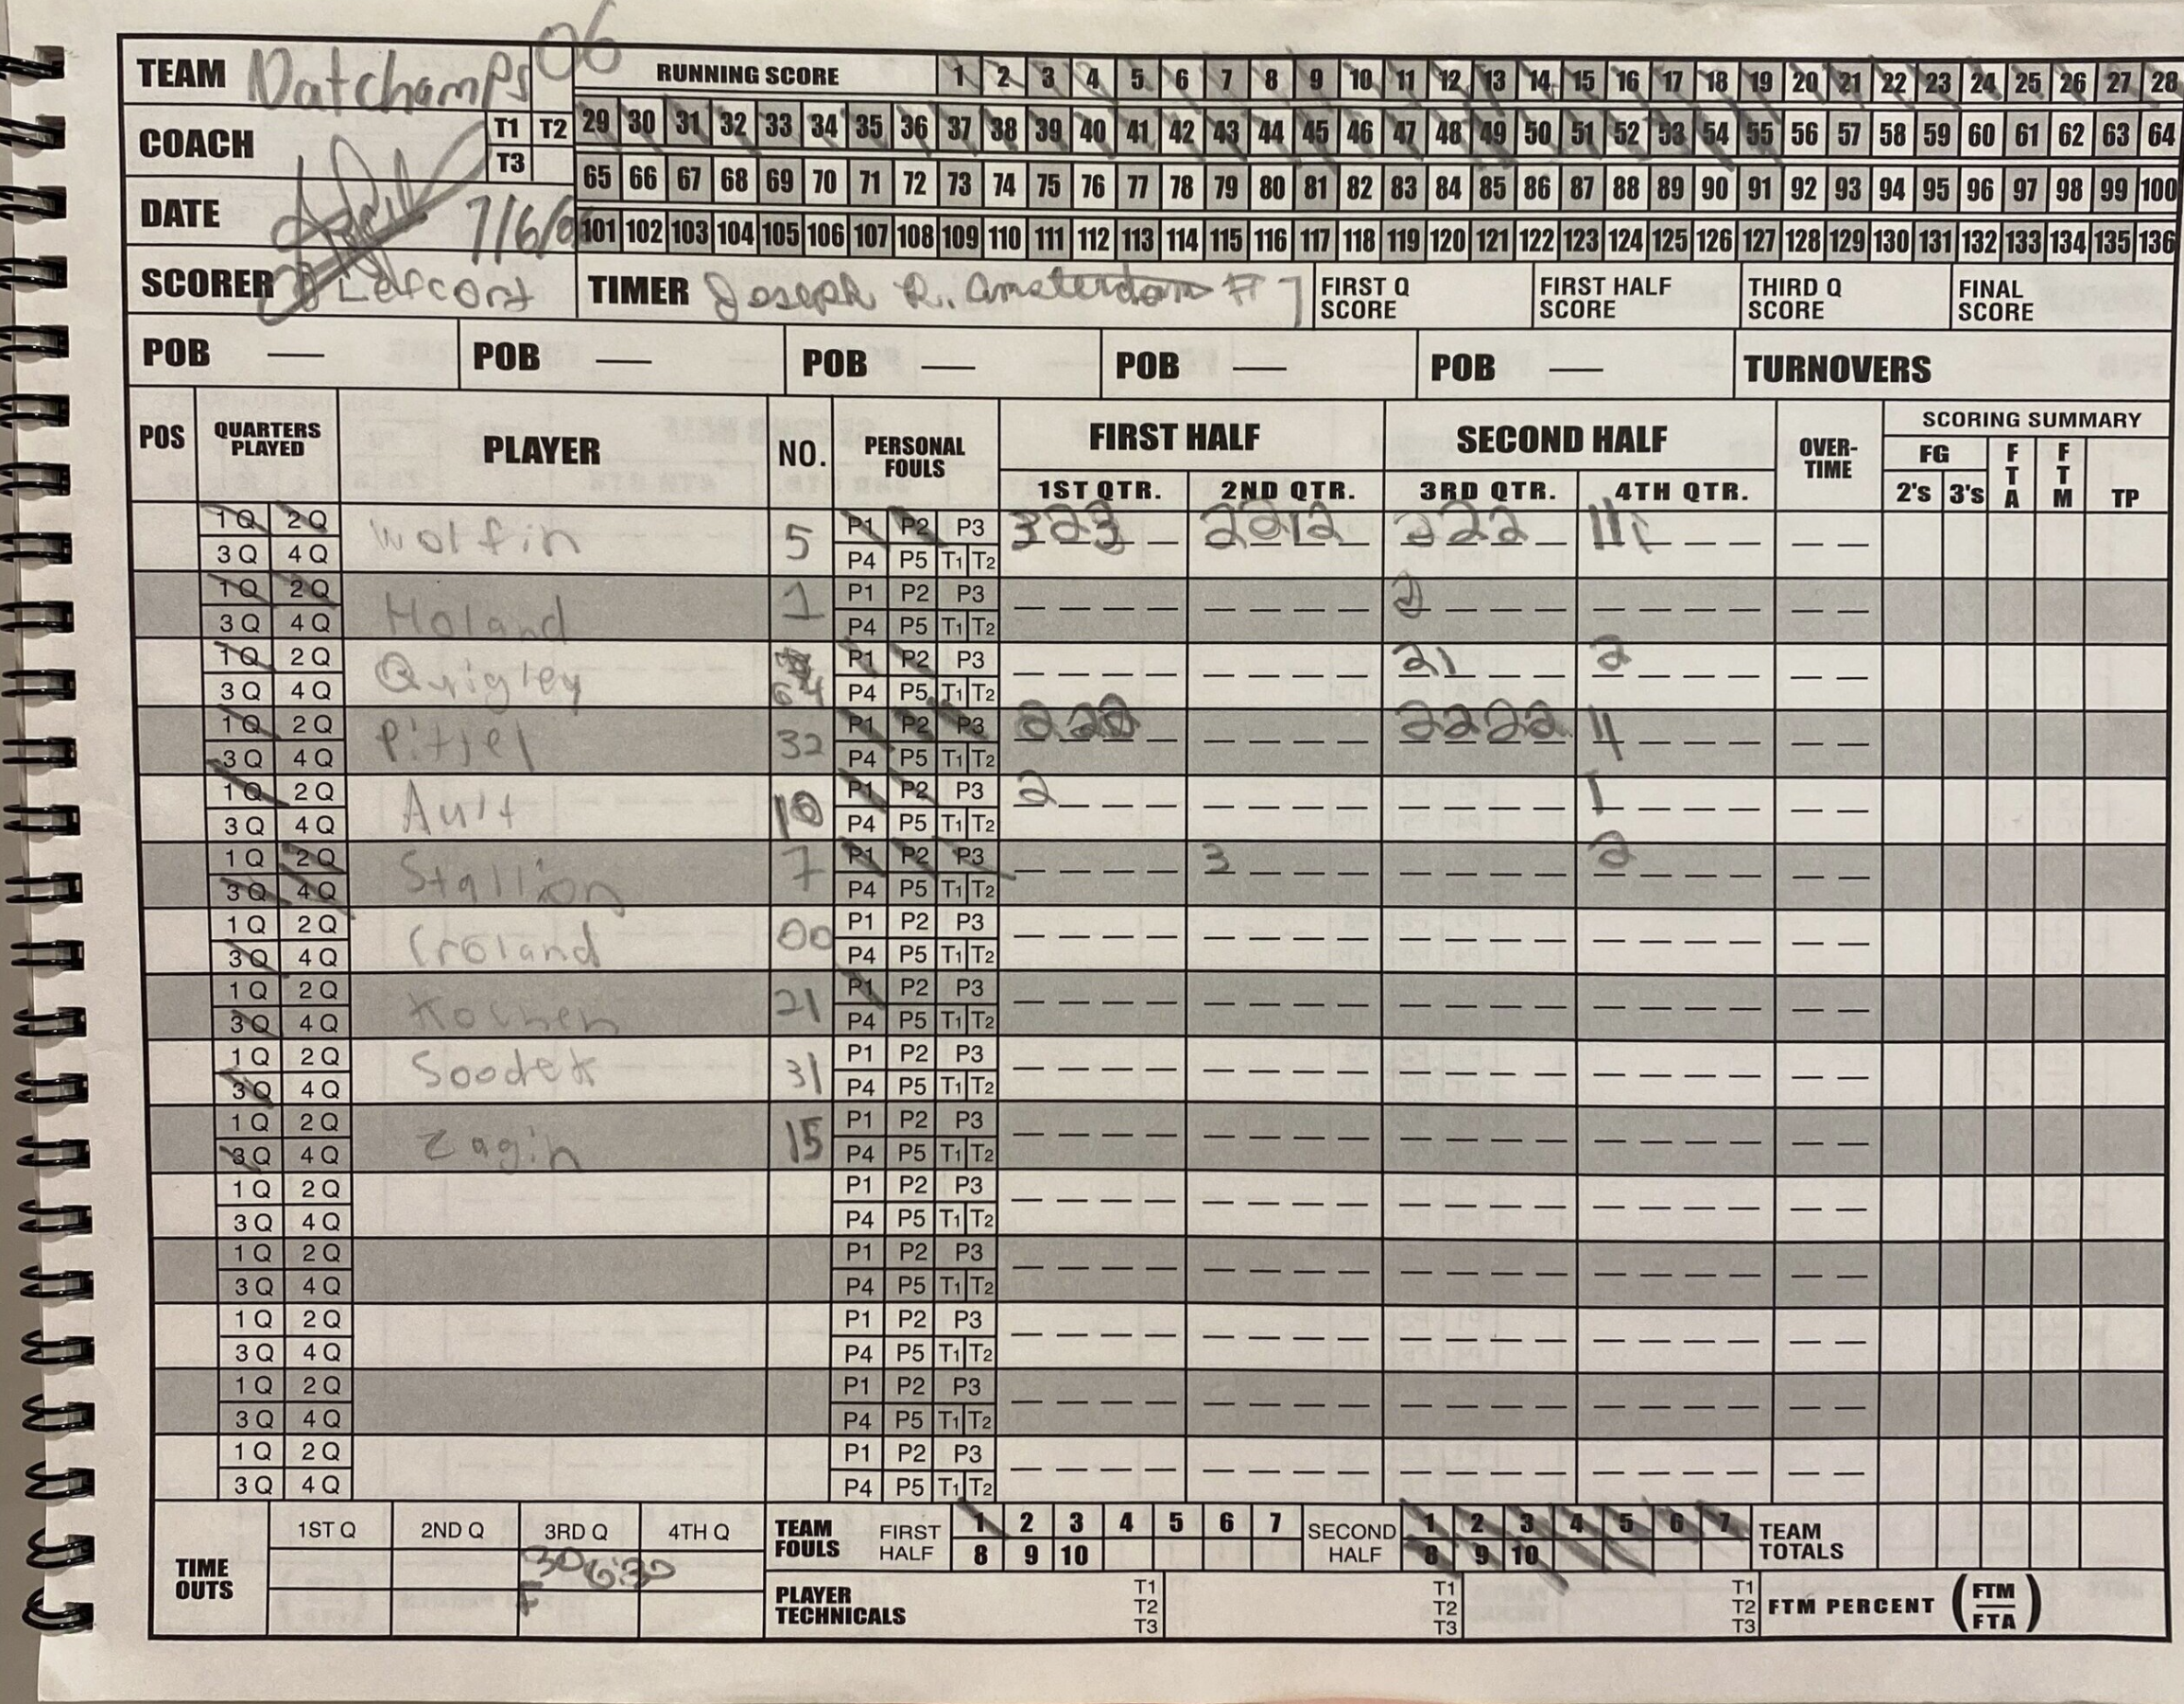 TEAM Natchamps 06
RUNNING SCORE 1 2 3 4 5 6 7 8 9 10 11 12 13 14 15 16 17 18 19 20 21 22 23 24 25 26 27 28
COACH T1 T2 29 30 31 32 33 34 35 36 37 38 39 40 41 42 43 44 45 46 47 48 49 50 51 52 53 54 55 56 57 58 59 60 61 62 63 64
T3
65 66 67 68 69 70 71 72 73 74 75 76 77 78 79 80 81 82 83 84 85 86 87 88 89 90 91 92 93 94 95 96 97 98 99 100
DATE 7/6/0
101 102 103 104 105 106 107 108 109 110 111 112 113 114 115 116 117 118 119 120 121 122 123 124 125 126 127 128 129 130 131 132 133 134 135 136
SCORER Lefcort TIMER Joseph R. Amsterdam # 7 FIRST Q SCORE FIRST HALF SCORE THIRD Q SCORE FINAL SCORE
POB — POB — POB — POB — POB — TURNOVERS
POS QUARTERS PLAYED PLAYER NO. PERSONAL FOULS FIRST HALF SECOND HALF OVER-TIME SCORING SUMMARY
FG FTA FTM TP
1ST QTR. 2ND QTR. 3RD QTR. 4TH QTR. 2's 3's
1 Q 2 Q Wolfin 5 P1 P2 P3 3 2 3 2 2 1 2 2 2 2 1 1 1
3 Q 4 Q P4 P5 T1 T2
1 Q 2 Q Holand 1 P1 P2 P3 2
3 Q 4 Q P4 P5 T1 T2
1 Q 2 Q Quigley 64 P1 P2 P3 2 1 2
3 Q 4 Q P4 P5 T1 T2
1 Q 2 Q Pittel 32 P1 P2 P3 2 2 2 2 2 2 2 4
3 Q 4 Q P4 P5 T1 T2
1 Q 2 Q Ault 10 P1 P2 P3 2 1
3 Q 4 Q P4 P5 T1 T2
1 Q 2 Q Stallion 7 P1 P2 P3 3 2
3 Q 4 Q P4 P5 T1 T2
1 Q 2 Q Croland 00 P1 P2 P3
3 Q 4 Q P4 P5 T1 T2
1 Q 2 Q 21 P1 P2 P3
3 Q 4 Q P4 P5 T1 T2
1 Q 2 Q Soodek 31 P1 P2 P3
3 Q 4 Q P4 P5 T1 T2
1 Q 2 Q Zagin 15 P1 P2 P3
3 Q 4 Q P4 P5 T1 T2
1 Q 2 Q P1 P2 P3
3 Q 4 Q P4 P5 T1 T2
1 Q 2 Q P1 P2 P3
3 Q 4 Q P4 P5 T1 T2
1 Q 2 Q P1 P2 P3
3 Q 4 Q P4 P5 T1 T2
1 Q 2 Q P1 P2 P3
3 Q 4 Q P4 P5 T1 T2
1 Q 2 Q P1 P2 P3
3 Q 4 Q P4 P5 T1 T2
TIME OUTS 1ST Q 2ND Q 3RD Q 4TH Q TEAM FOULS FIRST HALF 1 2 3 4 5 6 7 SECOND HALF 1 2 3 4 5 6 7 TEAM TOTALS
8 9 10 8 9 10
30 6:30
F
PLAYER TECHNICALS T1 T2 T3 T1 T2 T3 T1 T2 T3 FTM PERCENT (FTM/FTA)